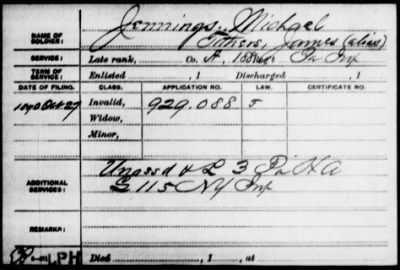 NAME OF SOLDIER: Jennings, Michael
James (alias)
SERVICE: Late rank, Co. A, Pa Inf
TERM OF SERVICE: Enlisted , 1 Discharged , 1
DATE OF FILING. CLASS. APPLICATION NO. LAW. CERTIFICATE NO.
1890 Oct 27 Invalid, 929.088
Widow,
Minor,
ADDITIONAL SERVICES: Unassd & L 3 Pa H A
G 115 NY Inf
REMARKS:
LPH Died , 1 , at